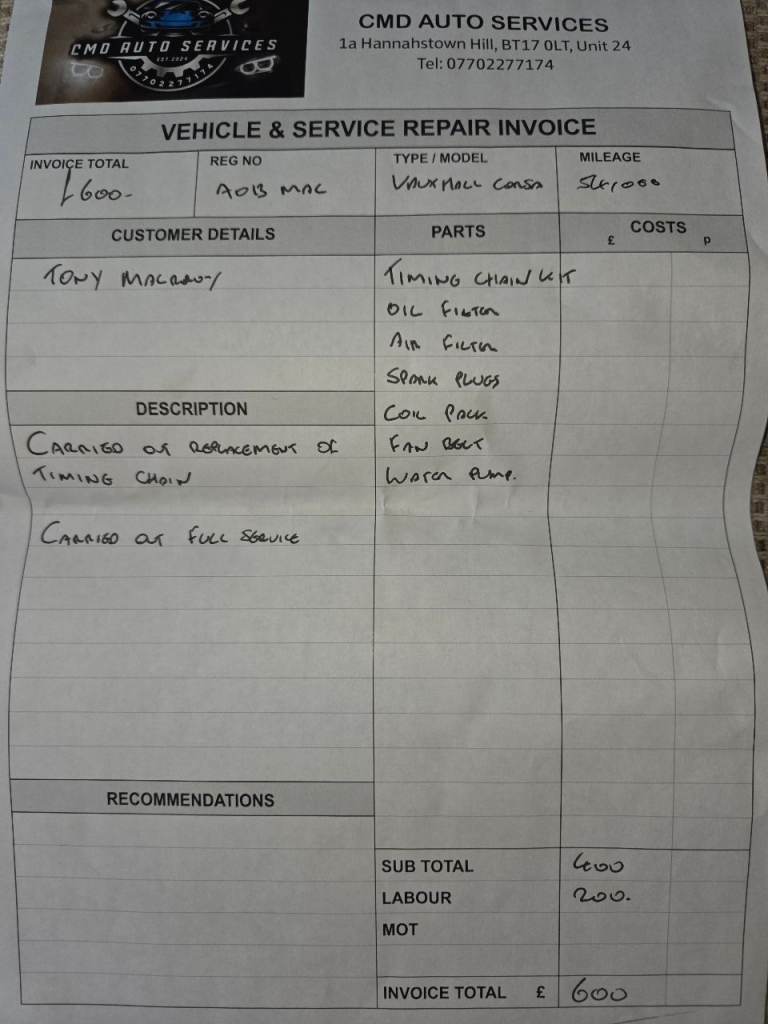 CMD AUTO SERVICES
EST.2024
07702277174
CMD AUTO SERVICES
1a Hannahstown Hill, BT17 0LT, Unit 24
Tel: 07702277174
VEHICLE & SERVICE REPAIR INVOICE
INVOICE TOTAL REG NO TYPE / MODEL MILEAGE
£600- AO13 MAC VAUXHALL CORSA 54,000
CUSTOMER DETAILS PARTS COSTS
£ p
TONY TIMING CHAIN KIT
OIL FILTER
AIR FILTER
SPARK PLUGS
DESCRIPTION COIL PACK
CARRIED OUT REPLACEMENT OF FAN BELT
TIMING CHAIN WATER PUMP.
CARRIED OUT FULL SERVICE
RECOMMENDATIONS
SUB TOTAL 400
LABOUR 200.
MOT
INVOICE TOTAL £ 600